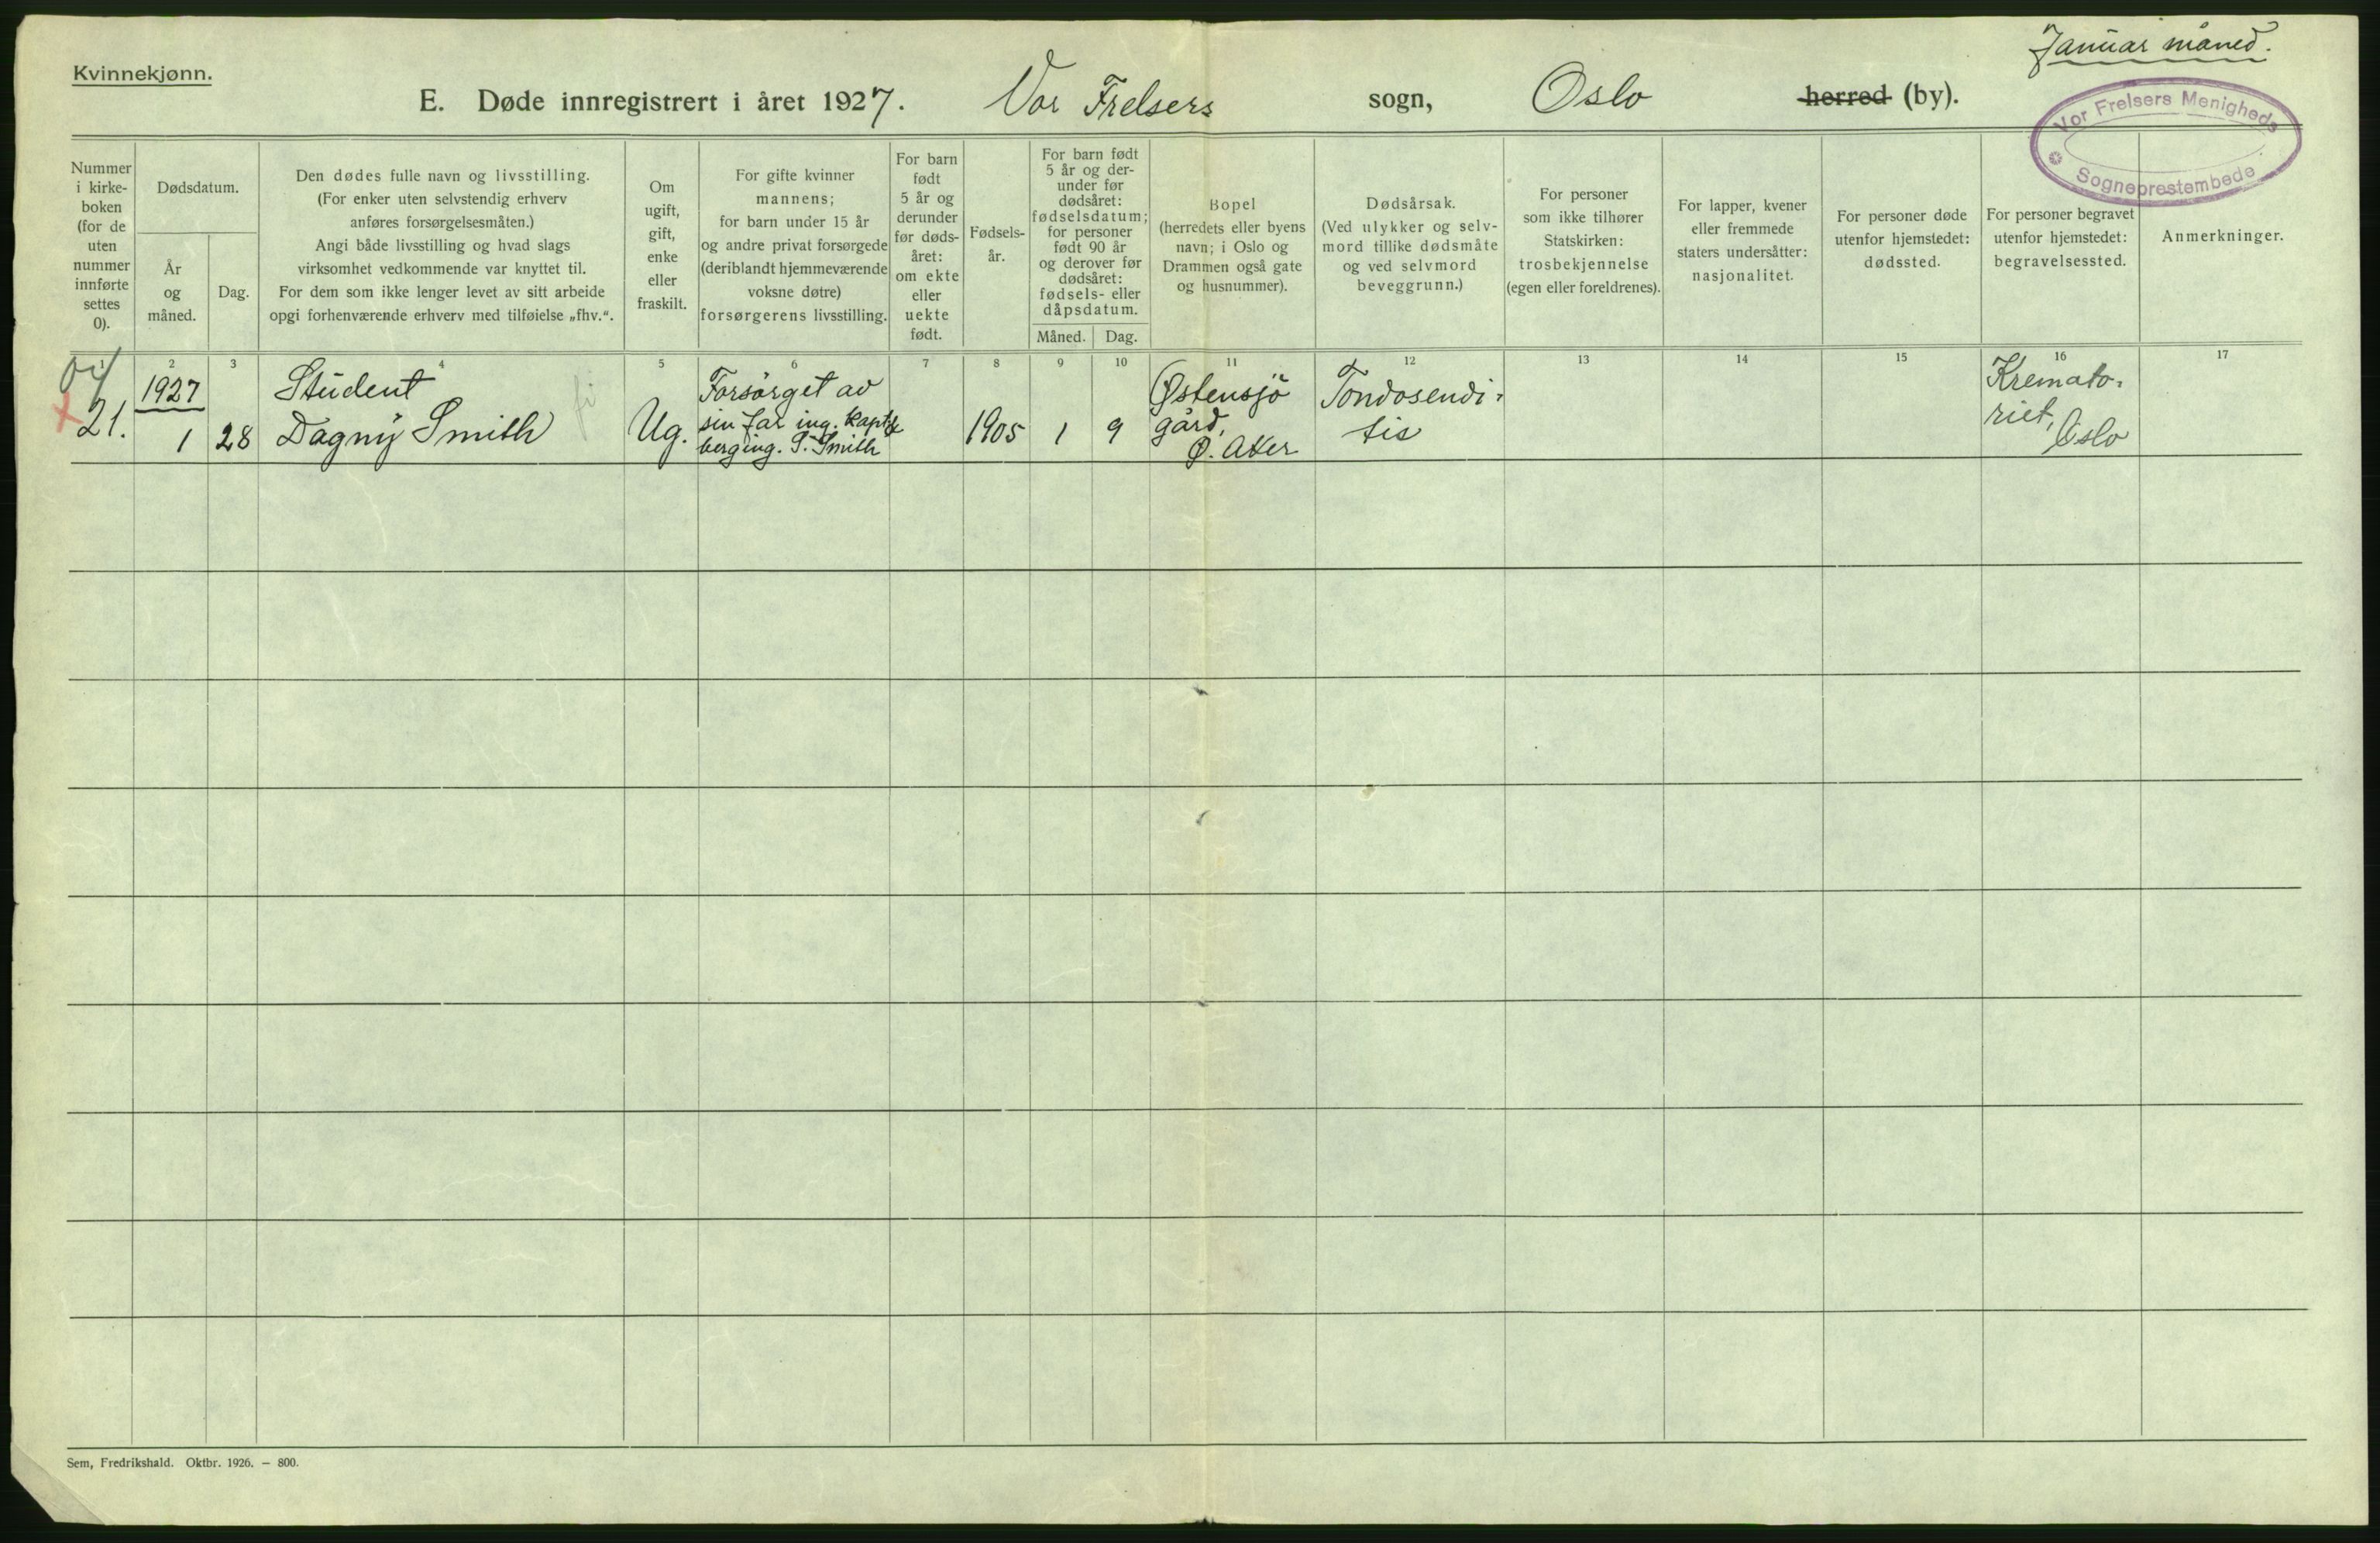 Januar måned.
Kvinnekjønn.
E. Døde innregistrert i året 1927. Vor Frelsers sogn, Oslo herred (by).
Vor Frelsers Menigheds
Sogneprestembede
Nummer
i kirke-
boken
(for de
uten
nummer
innførte
settes
0).
Dødsdatum.
År
og
måned.
Dag.
Den dødes fulle navn og livsstilling.
(For enker uten selvstendig erhverv
anføres forsørgelsesmåten.)
Angi både livsstilling og hvad slags
virksomhet vedkommende var knyttet til.
For dem som ikke lenger levet av sitt arbeide
opgi forhenværende erhverv med tilføielse „fhv.“.
Om
ugift,
gift,
enke
eller
fraskilt.
For gifte kvinner
mannens;
for barn under 15 år
og andre privat forsørgede
(deriblandt hjemmeværende
voksne døtre)
forsørgerens livsstilling.
For barn
født
5 år og
derunder
før døds-
året:
om ekte
eller
uekte
født.
Fødsels-
år.
For barn født
5 år og der-
under før
dødsåret:
fødselsdatum;
for personer
født 90 år
og derover før
dødsåret:
fødsels- eller
dåpsdatum.
Måned. Dag.
Bopel
(herredets eller byens
navn; i Oslo og
Drammen også gate
og husnummer).
Dødsårsak.
(Ved ulykker og selv-
mord tillike dødsmåte
og ved selvmord
beveggrunn.)
For personer
som ikke tilhører
Statskirken:
trosbekjennelse
(egen eller foreldrenes).
For lapper, kvener
eller fremmede
staters undersåtter:
nasjonalitet.
For personer døde
utenfor hjemstedet:
dødssted.
For personer begravet
utenfor hjemstedet:
begravelsessted.
Anmerkninger.
2 3 4 5 6 7 8 9 10 11 12 13 14 15 16 17
21.
1927
1 28
Student
Dagny Smith
Ug.
Forsørget av
sin far ing.
berging. S. Smith
1905 1 9
Østensjö
gård,
Ø. Aker
Tondosendi-
tis
Kremato-
riet,
Oslo
Sem, Fredrikshald. Oktbr. 1926. — 800.